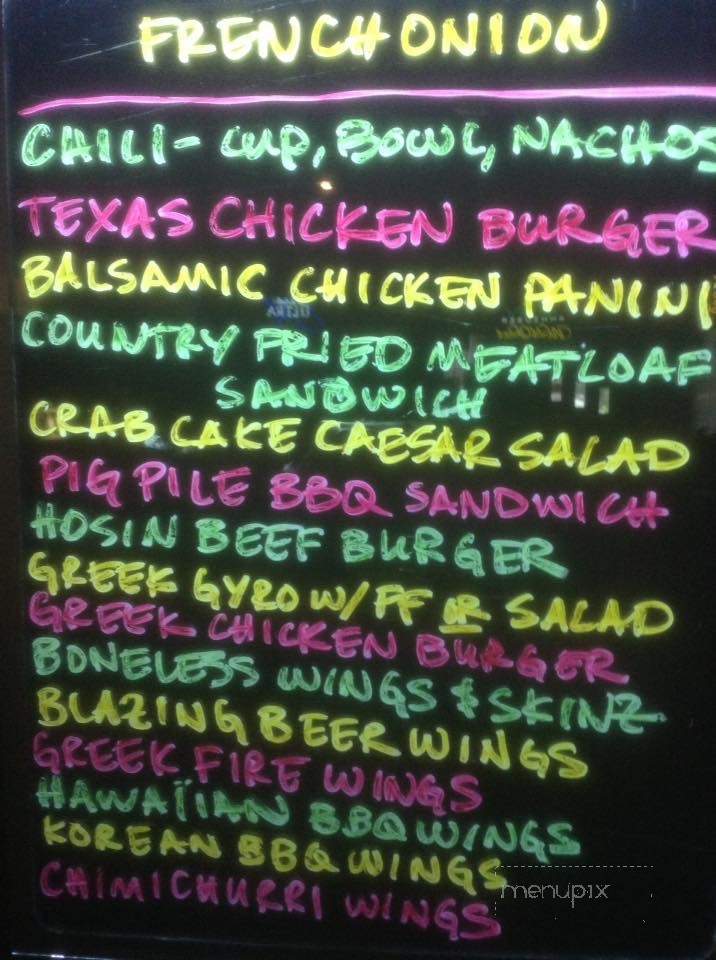 FRENCH ONION
CHILI- CUP, BOWL, NACHOS
TEXAS CHICKEN BURGER
BALSAMIC CHICKEN PANINI
ULTRA
COUNTRY FRIED MEATLOAF
SANDWICH
CRAB CAKE CAESAR SALAD
PIG PILE BBQ SANDWICH
HOSIN BEEF BURGER
GREEK GYRO W/FF OR SALAD
GREEK CHICKEN BURGER
BONELESS WINGS & SKINZ
BLAZING BEER WINGS
GREEK FIRE WINGS
HAWAIIAN BBQ WINGS
KOREAN BBQ WINGS
CHIMICHURRI WINGS
menupix